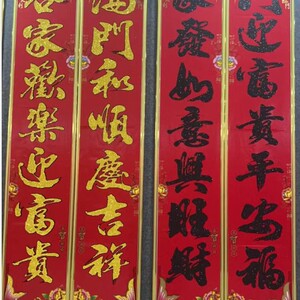 門迎富貴平安福
家發如意興旺財
滿門和順慶吉祥
家歡樂迎富貴